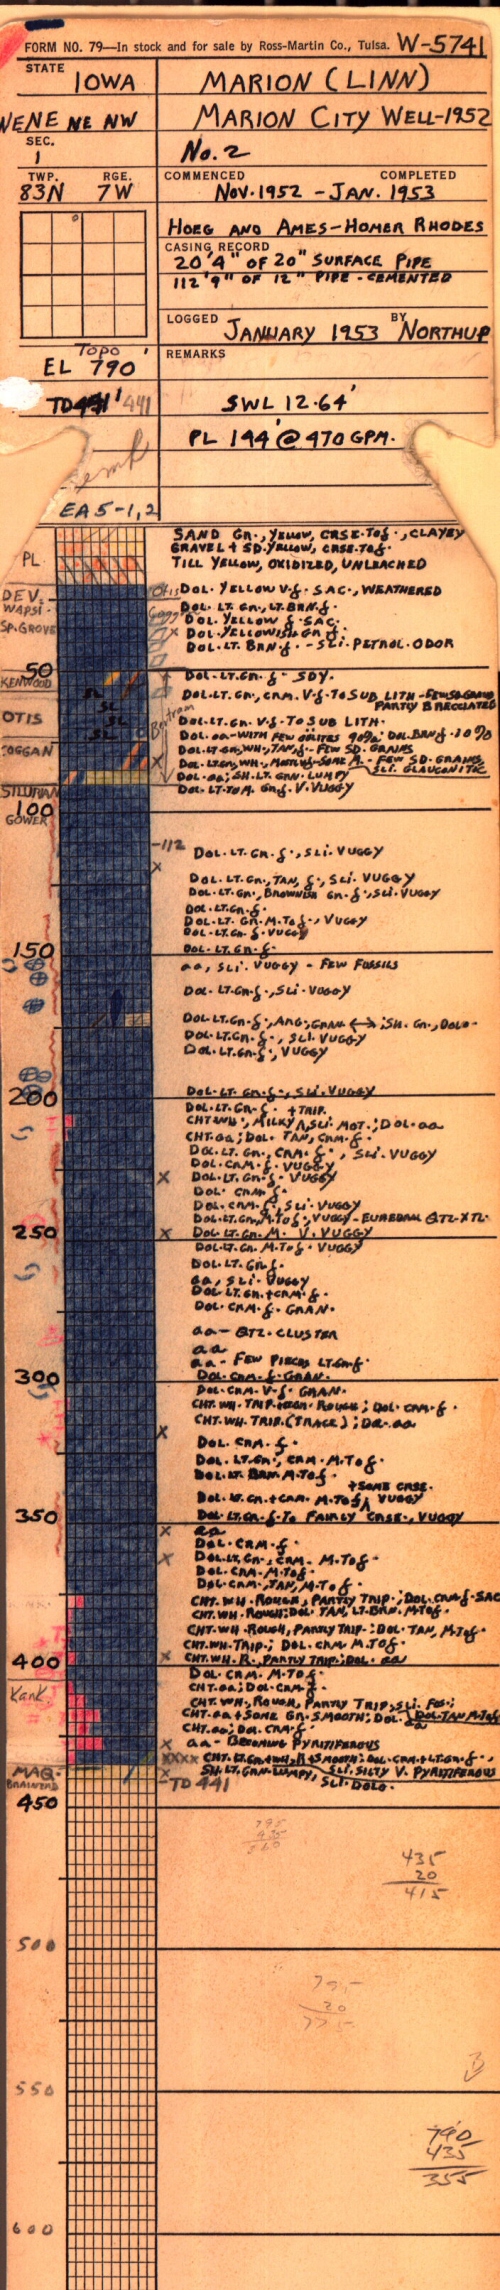 FORM NO. 79—In stock and for sale by Ross-Martin Co., Tulsa. W-5741
STATE IOWA
MARION (LINN)
NENE NE NW
MARION CITY WELL-1952
SEC. 1
No. 2
TWP. 83N RGE. 7W
COMMENCED COMPLETED
NOV. 1952 - JAN. 1953
HOEG AND AMES-HOMER RHODES
CASING RECORD
20'4" OF 20" SURFACE PIPE
112'9" OF 12" PIPE - CEMENTED
LOGGED JANUARY 1953 BY NORTHUP
Topo
EL 790'
REMARKS
TD 441' 441
SWL 12.64'
PL 144' @ 470 GPM.
EA 5-1,2
SAND GN., YELLOW, CRSE. TO f., CLAYEY
GRAVEL + SD. YELLOW, CRSE. TO f.
PL.
TILL YELLOW, OXIDIZED, UNLEACHED
DEV.
Otis
DOL. YELLOW V.f. SAC., WEATHERED
WAPSI.
DOL. LT. GN., LT. BRN. f.
DOL. YELLOW f. SAC.
SP. GROVE
DOL. YELLOWISH GN. f.
DOL. LT. BRN. f. - SLI. PETROL. ODOR
50
KENWOOD
DOL. LT. GN. f. SDY.
DOL. LT. GN., CRM. V.f. TO SUB LITH -
PARTLY BRECCIATED
OTIS
SL
SL
SL
SL
Bertram
DOL. LT. GN. V.f. TO SUB LITH.
DOL. aa - WITH FEW OOLITES 90%; DOL. BRN. f. 10%
COGGAN
DOL. LT. GN., WH., TAN, f. - FEW SD. GRAINS
DOL. LT. GN., WH., MOSTLY f. SOME M. - FEW SD. GRAINS
SLI. GLAUCONITIC
DOL. aa; SH. LT. GRN. LUMPY
SILURIAN
DOL. LT. TO M. GN. f. V. VUGGY
100
GOWER
-112
DOL. LT. GN. f., SLI. VUGGY
DOL. LT. GN., TAN, f., SLI. VUGGY
DOL. LT. GN., BROWNISH GN. f., SLI. VUGGY
DOL. LT. GN. f.
DOL. LT. GN. M. TO f., VUGGY
DOL. LT. GN. f. VUGGY
150
DOL. LT. GN. f.
aa, SLI. VUGGY - FEW FOSSILS
DOL. LT. GN. f., SLI. VUGGY
DOL. LT. GN. f., ARG., GRAN. ↔; SH. GN., DOLO.
DOL. LT. GN. f., SLI. VUGGY
DOL. LT. GN. f., VUGGY
200
DOL. LT. GN. f., SLI. VUGGY
DOL. LT. GN. f.
+ TRIP.
CHT. WH., MILKY, SLI. MOT.; DOL. aa
CHT. aa; DOL. TAN, CRM. f.
DOL. LT. GN., CRM. f., SLI. VUGGY
DOL. CRM. f. VUGGY
DOL. LT. GN. f. VUGGY
DOL. CRM. f.
DOL. CRM. f., SLI. VUGGY
DOL. LT. GN. M. TO f., VUGGY - EUHEDRAL QTZ. XTL.
250
DOL. LT. GN. M. V. VUGGY
DOL. LT. GN. M. TO f. VUGGY
DOL. LT. GN. f.
aa, SLI. VUGGY
DOL. LT. GN. + CRM. f.
DOL. CRM. f. GRAN.
aa - QTZ. CLUSTER
aa
aa - FEW PIECES LT. GN. f.
300
DOL. CRM. f. GRAN.
DOL. CRM. V.f. GRAN.
CHT. WH. TRIP. ROUGH; DOL. CRM. f.
CHT. WH. TRIP. (TRACE); DOL. aa
DOL. CRM. f.
DOL. LT. GN., CRM. M. TO f.
DOL. LT. BRN. M. TO f.
+ SOME CRSE.
DOL. LT. GN. + CRM. M. TO f. VUGGY
350
DOL. LT. GN. f. TO FAIRLY CRSE., VUGGY
aa
DOL. CRM. f.
DOL. LT. GN., CRM. M. TO f.
DOL. CRM. M. TO f.
DOL. CRM., TAN, M. TO f.
CHT. WH. ROUGH, PARTLY TRIP.; DOL. CRM. f. SAC
CHT. WH. ROUGH; DOL. TAN, LT. BRN. M. TO f.
CHT. WH. ROUGH, PARTLY TRIP.; DOL. TAN, M. TO f.
CHT. WH. TRIP.; DOL. CRM. M. TO f.
400
CHT. WH. R., PARTLY TRIP.; DOL. aa
DOL. CRM. M. TO f.
Kank
CHT. aa; DOL. CRM. f.
CHT. WH., ROUGH, PARTLY TRIP., SLI. FOS.;
DOL. TAN M. TO f.
CHT. aa + SOME GN. SMOOTH; DOL. aa
CHT. aa; DOL. CRM. f.
aa - BECOMING PYRITIFEROUS
XXXX CHT. LT. GN. + WH., R. + SMOOTH; DOL. CRM. + LT. GN. f.
MAQ.
BRAINARD
SH. LT. GRN. LUMPY, SLI. SILTY V. PYRITIFEROUS
SLI. DOLO.
-TD 441
450
795
435
435
20
415
500
795
20
775
550
790
435
355
600